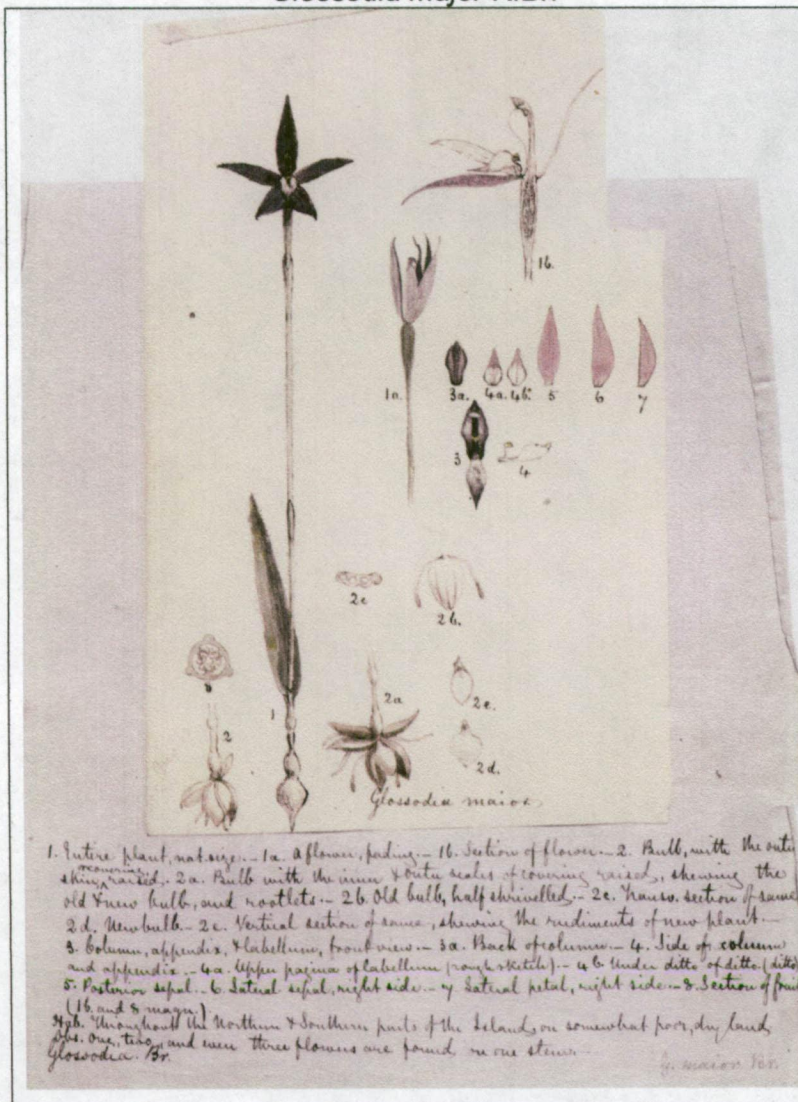 Glossodia major R.Br.
1b.
1a.
3a. 4a. 4b. 5 6 7
3
4
2c
2b.
2a
2e.
1
2
2d.
Glossodia maior
1. Entire plant, nat. size. - 1a. A flower, fading. - 1b. Section of flower. - 2. Bulb, with the outer
skin, raised. 2a. Bulb with the inner & outer scales of covering raised, shewing the
old & new bulb, and rootlets. - 2b. Old bulb, half shrivelled. - 2c. Transv. section of same
2d. New bulb. - 2e. Vertical section of same, shewing the rudiments of new plant. -
3. Column, appendix, & labellum, front view. - 3a. Back of column. - 4. Side of column
and appendix. - 4a. Upper pagina of labellum (rough sketch). - 4b. Under ditto of ditto. (ditto)
5. Posterior sepal. - 6. Lateral sepal, right side. - 7. Lateral petal, right side. - 8. Section of fruit
(1b. and 8 magn.)
Hab. Throughout the Northern & Southern parts of the Island, on somewhat poor, dry land,
Obs. One, two, and even three flowers are found on one stem. -
Glossodia. Br.
G. maior Br.